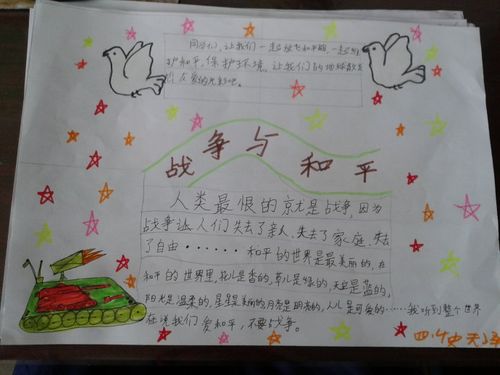 同学们，让我们一起放飞和平鸽，一起
护和平，保护环境，让我们的地球
在爱的光彩吧。
战争与和平
人类最恨的就是战争，因为
战争让人们失去了亲人，失去了家庭，失去
了自由······和平的世界是最美丽的，在
和平的世界里，花儿是香的，草儿是绿的，天空是蓝的，
阳光是温柔的，星星是美丽的，月亮是明亮的，人儿是可爱的······我听到整个世界
在说我们爱和平，不要战争。
四.4